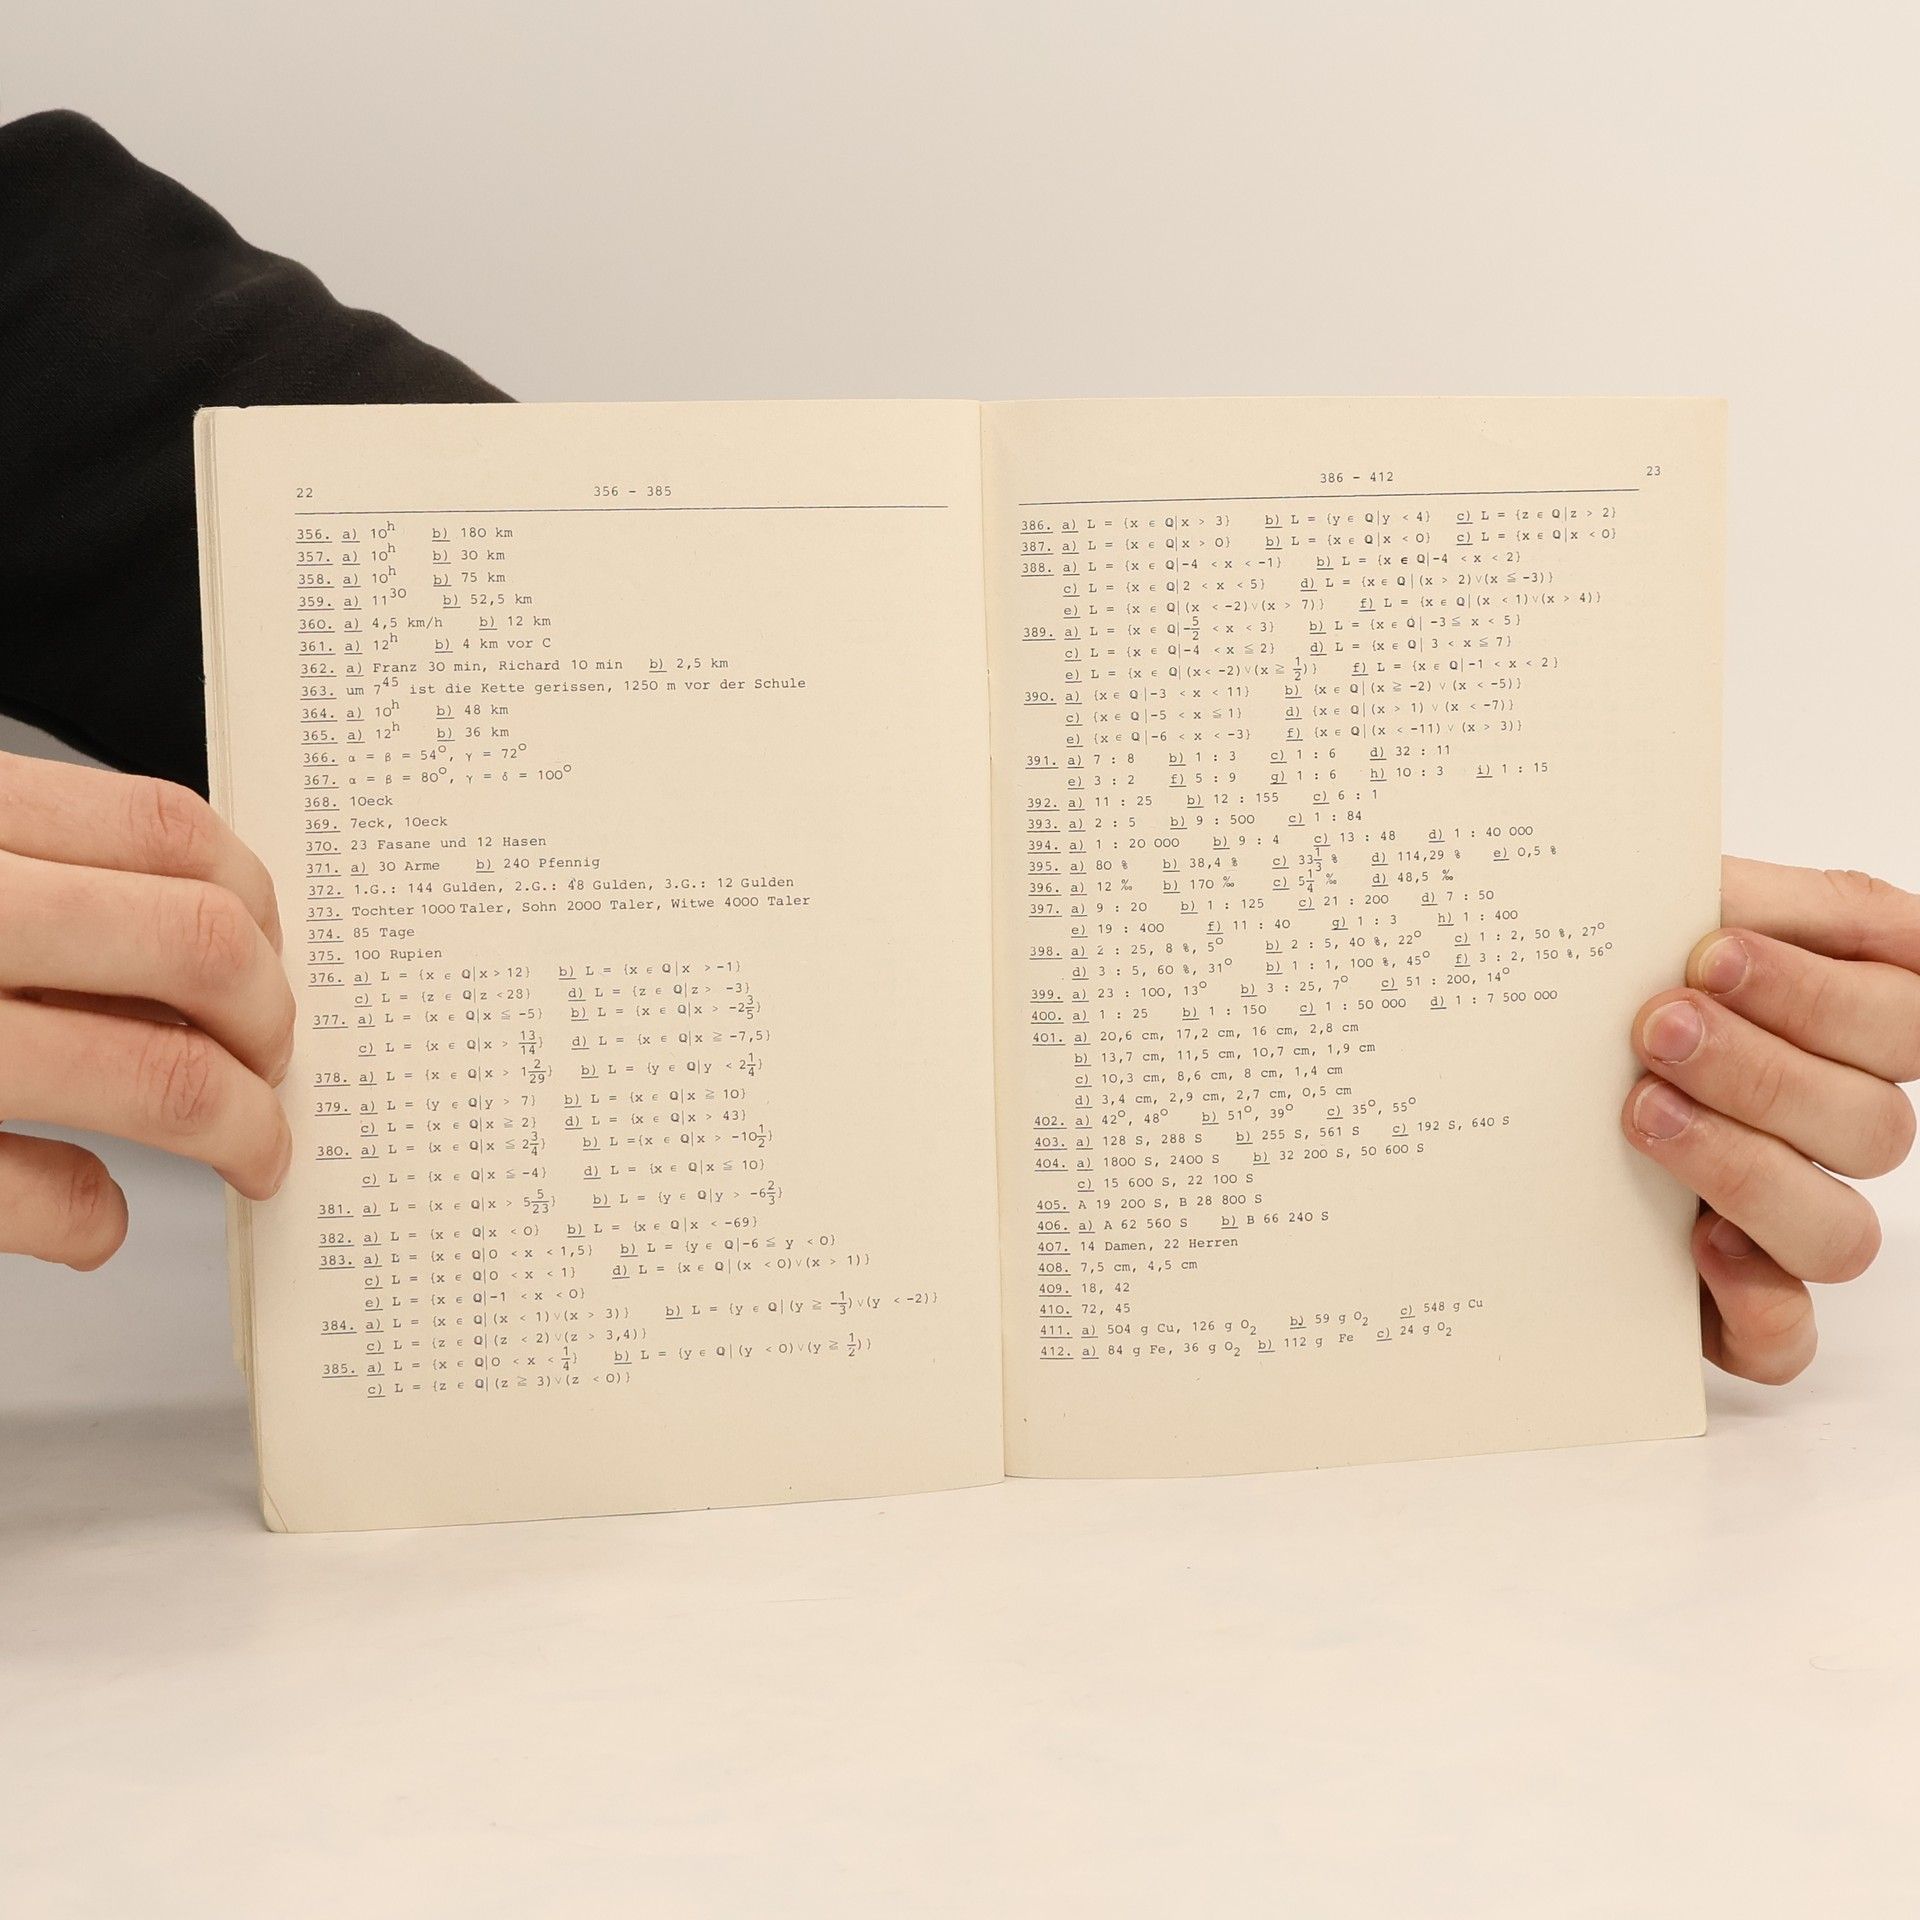 22 356 - 385
356. a) 10ʰ b) 180 km
357. a) 10ʰ b) 30 km
358. a) 10ʰ b) 75 km
359. a) 11³⁰ b) 52,5 km
360. a) 4,5 km/h b) 12 km
361. a) 12ʰ b) 4 km vor C
362. a) Franz 30 min, Richard 10 min b) 2,5 km
363. um 7⁴⁵ ist die Kette gerissen, 1250 m vor der Schule
364. a) 10ʰ b) 48 km
365. a) 12ʰ b) 36 km
366. α = β = 54°, γ = 72°
367. α = β = 80°, γ = δ = 100°
368. 10eck
369. 7eck, 10eck
370. 23 Fasane und 12 Hasen
371. a) 30 Arme b) 240 Pfennig
372. 1.G.: 144 Gulden, 2.G.: 48 Gulden, 3.G.: 12 Gulden
373. Tochter 1000 Taler, Sohn 2000 Taler, Witwe 4000 Taler
374. 85 Tage
375. 100 Rupien
376. a) L = {x ∈ Q|x > 12} b) L = {x ∈ Q|x > -1}
c) L = {z ∈ Q|z < 28} d) L = {z ∈ Q|z > -3}
377. a) L = {x ∈ Q|x ≦ -5} b) L = {x ∈ Q|x > -2 3/5}
c) L = {x ∈ Q|x > 13/14} d) L = {x ∈ Q|x ≧ -7,5}
378. a) L = {x ∈ Q|x > 1 2/29} b) L = {y ∈ Q|y < 2 1/4}
379. a) L = {y ∈ Q|y > 7} b) L = {x ∈ Q|x ≧ 10}
c) L = {x ∈ Q|x ≧ 2} d) L = {x ∈ Q|x > 43}
380. a) L = {x ∈ Q|x ≦ 2 3/4} b) L = {x ∈ Q|x > -10 1/2}
c) L = {x ∈ Q|x ≦ -4} d) L = {x ∈ Q|x ≦ 10}
381. a) L = {x ∈ Q|x > 5 5/23} b) L = {y ∈ Q|y > -6 2/3}
382. a) L = {x ∈ Q|x < 0} b) L = {x ∈ Q|x < -69}
383. a) L = {x ∈ Q|0 < x < 1,5} b) L = {y ∈ Q|-6 ≦ y < 0}
c) L = {x ∈ Q|0 < x < 1} d) L = {x ∈ Q|(x < 0)∨(x > 1)}
e) L = {x ∈ Q|-1 < x < 0}
384. a) L = {x ∈ Q|(x < 1)∨(x > 3)} b) L = {y ∈ Q|(y ≧ -1/3)∨(y < -2)}
c) L = {z ∈ Q|(z < 2)∨(z > 3,4)}
385. a) L = {x ∈ Q|0 < x < 1/4} b) L = {y ∈ Q|(y < 0)∨(y ≧ 1/2)}
c) L = {z ∈ Q|(z ≧ 3)∨(z < 0)}
386 - 412 23
386. a) L = {x ∈ Q|x > 3} b) L = {y ∈ Q|y < 4} c) L = {z ∈ Q|z > 2}
387. a) L = {x ∈ Q|x > 0} b) L = {x ∈ Q|x < 0} c) L = {x ∈ Q|x < 0}
388. a) L = {x ∈ Q|-4 < x < -1} b) L = {x ∈ Q|-4 < x < 2}
c) L = {x ∈ Q|2 < x < 5} d) L = {x ∈ Q|(x > 2)∨(x ≦ -3)}
e) L = {x ∈ Q|(x < -2)∨(x > 7)} f) L = {x ∈ Q|(x < 1)∨(x > 4)}
389. a) L = {x ∈ Q|-5/2 < x < 3} b) L = {x ∈ Q|-3 ≦ x < 5}
c) L = {x ∈ Q|-4 < x ≦ 2} d) L = {x ∈ Q|3 < x ≦ 7}
e) L = {x ∈ Q|(x < -2)∨(x ≧ 1/2)} f) L = {x ∈ Q|-1 < x < 2}
390. a) {x ∈ Q|-3 < x < 11} b) {x ∈ Q|(x ≧ -2) ∨ (x < -5)}
c) {x ∈ Q|-5 < x ≦ 1} d) {x ∈ Q|(x > 1) ∨ (x < -7)}
e) {x ∈ Q|-6 < x < -3} f) {x ∈ Q|(x < -11) ∨ (x > 3)}
391. a) 7 : 8 b) 1 : 3 c) 1 : 6 d) 32 : 11
e) 3 : 2 f) 5 : 9 g) 1 : 6 h) 10 : 3 i) 1 : 15
392. a) 11 : 25 b) 12 : 155 c) 6 : 1
393. a) 2 : 5 b) 9 : 500 c) 1 : 84
394. a) 1 : 20 000 b) 9 : 4 c) 13 : 48 d) 1 : 40 000
395. a) 80 % b) 38,4 % c) 33 1/3 % d) 114,29 % e) 0,5 %
396. a) 12 ‰ b) 170 ‰ c) 5 1/4 ‰ d) 48,5 ‰
397. a) 9 : 20 b) 1 : 125 c) 21 : 200 d) 7 : 50
e) 19 : 400 f) 11 : 40 g) 1 : 3 h) 1 : 400
398. a) 2 : 25, 8 %, 5° b) 2 : 5, 40 %, 22° c) 1 : 2, 50 %, 27°
d) 3 : 5, 60 %, 31° b) 1 : 1, 100 %, 45° f) 3 : 2, 150 %, 56°
399. a) 23 : 100, 13° b) 3 : 25, 7° c) 51 : 200, 14°
400. a) 1 : 25 b) 1 : 150 c) 1 : 50 000 d) 1 : 7 500 000
401. a) 20,6 cm, 17,2 cm, 16 cm, 2,8 cm
b) 13,7 cm, 11,5 cm, 10,7 cm, 1,9 cm
c) 10,3 cm, 8,6 cm, 8 cm, 1,4 cm
d) 3,4 cm, 2,9 cm, 2,7 cm, 0,5 cm
402. a) 42°, 48° b) 51°, 39° c) 35°, 55°
403. a) 128 S, 288 S b) 255 S, 561 S c) 192 S, 640 S
404. a) 1800 S, 2400 S b) 32 200 S, 50 600 S
c) 15 600 S, 22 100 S
405. A 19 200 S, B 28 800 S
406. a) A 62 560 S b) B 66 240 S
407. 14 Damen, 22 Herren
408. 7,5 cm, 4,5 cm
409. 18, 42
410. 72, 45
411. a) 504 g Cu, 126 g O₂ b) 59 g O₂ c) 548 g Cu
412. a) 84 g Fe, 36 g O₂ b) 112 g Fe c) 24 g O₂